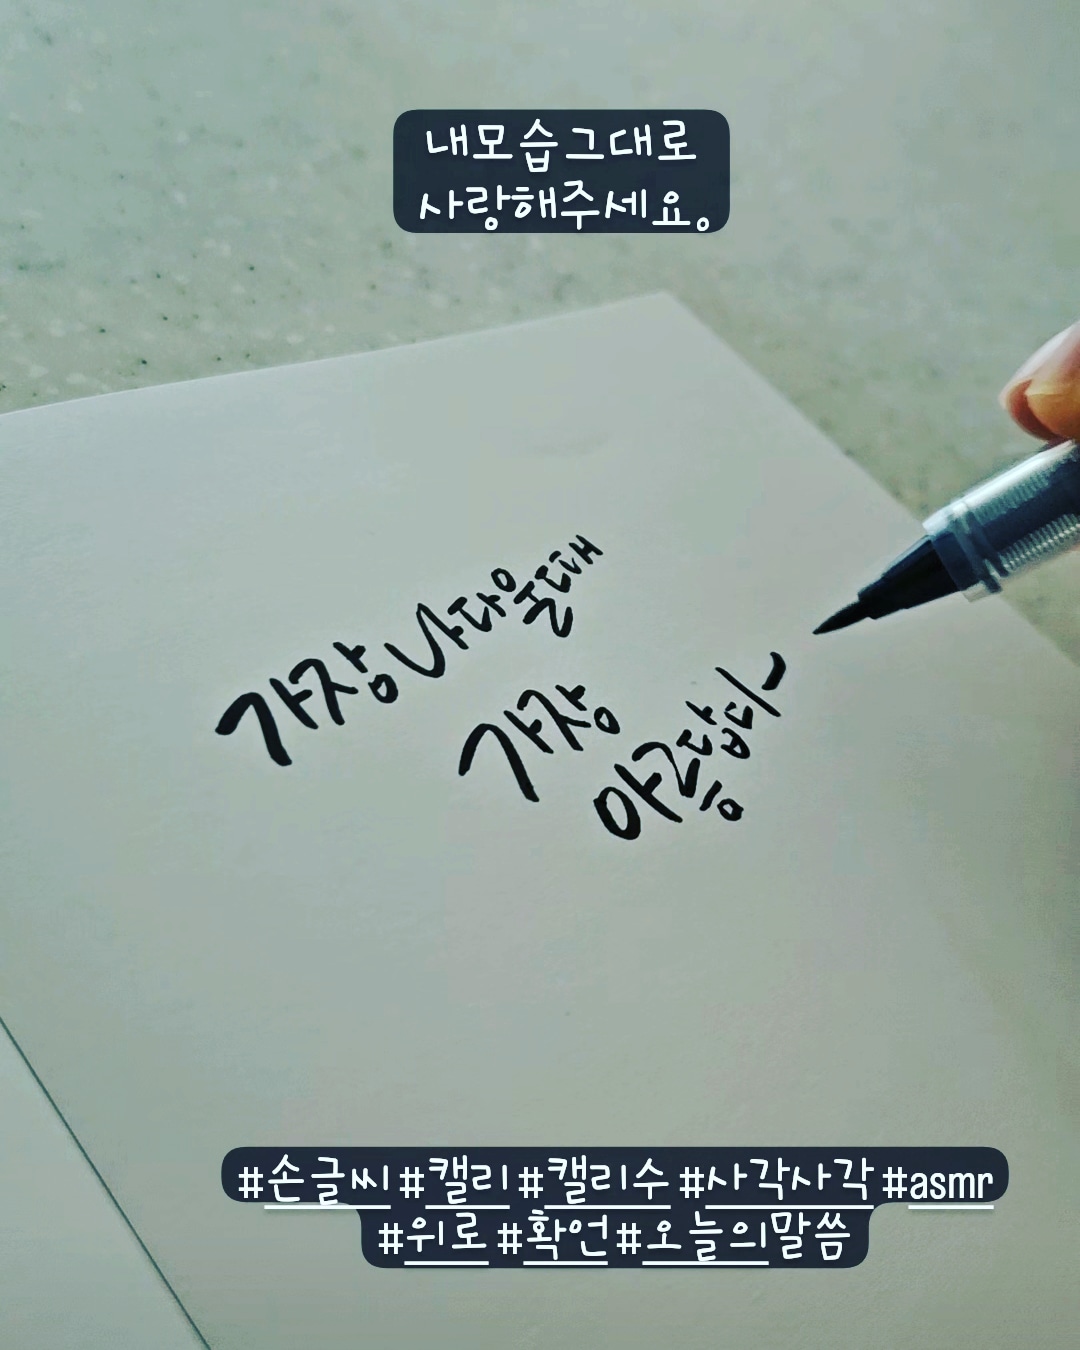 내모습그대로
사랑해주세요。
가장 나다울때
가장
아름답다
#손글씨 #캘리 #캘리수 #사각사각 #asmr
#위로 #확언 #오늘의말씀